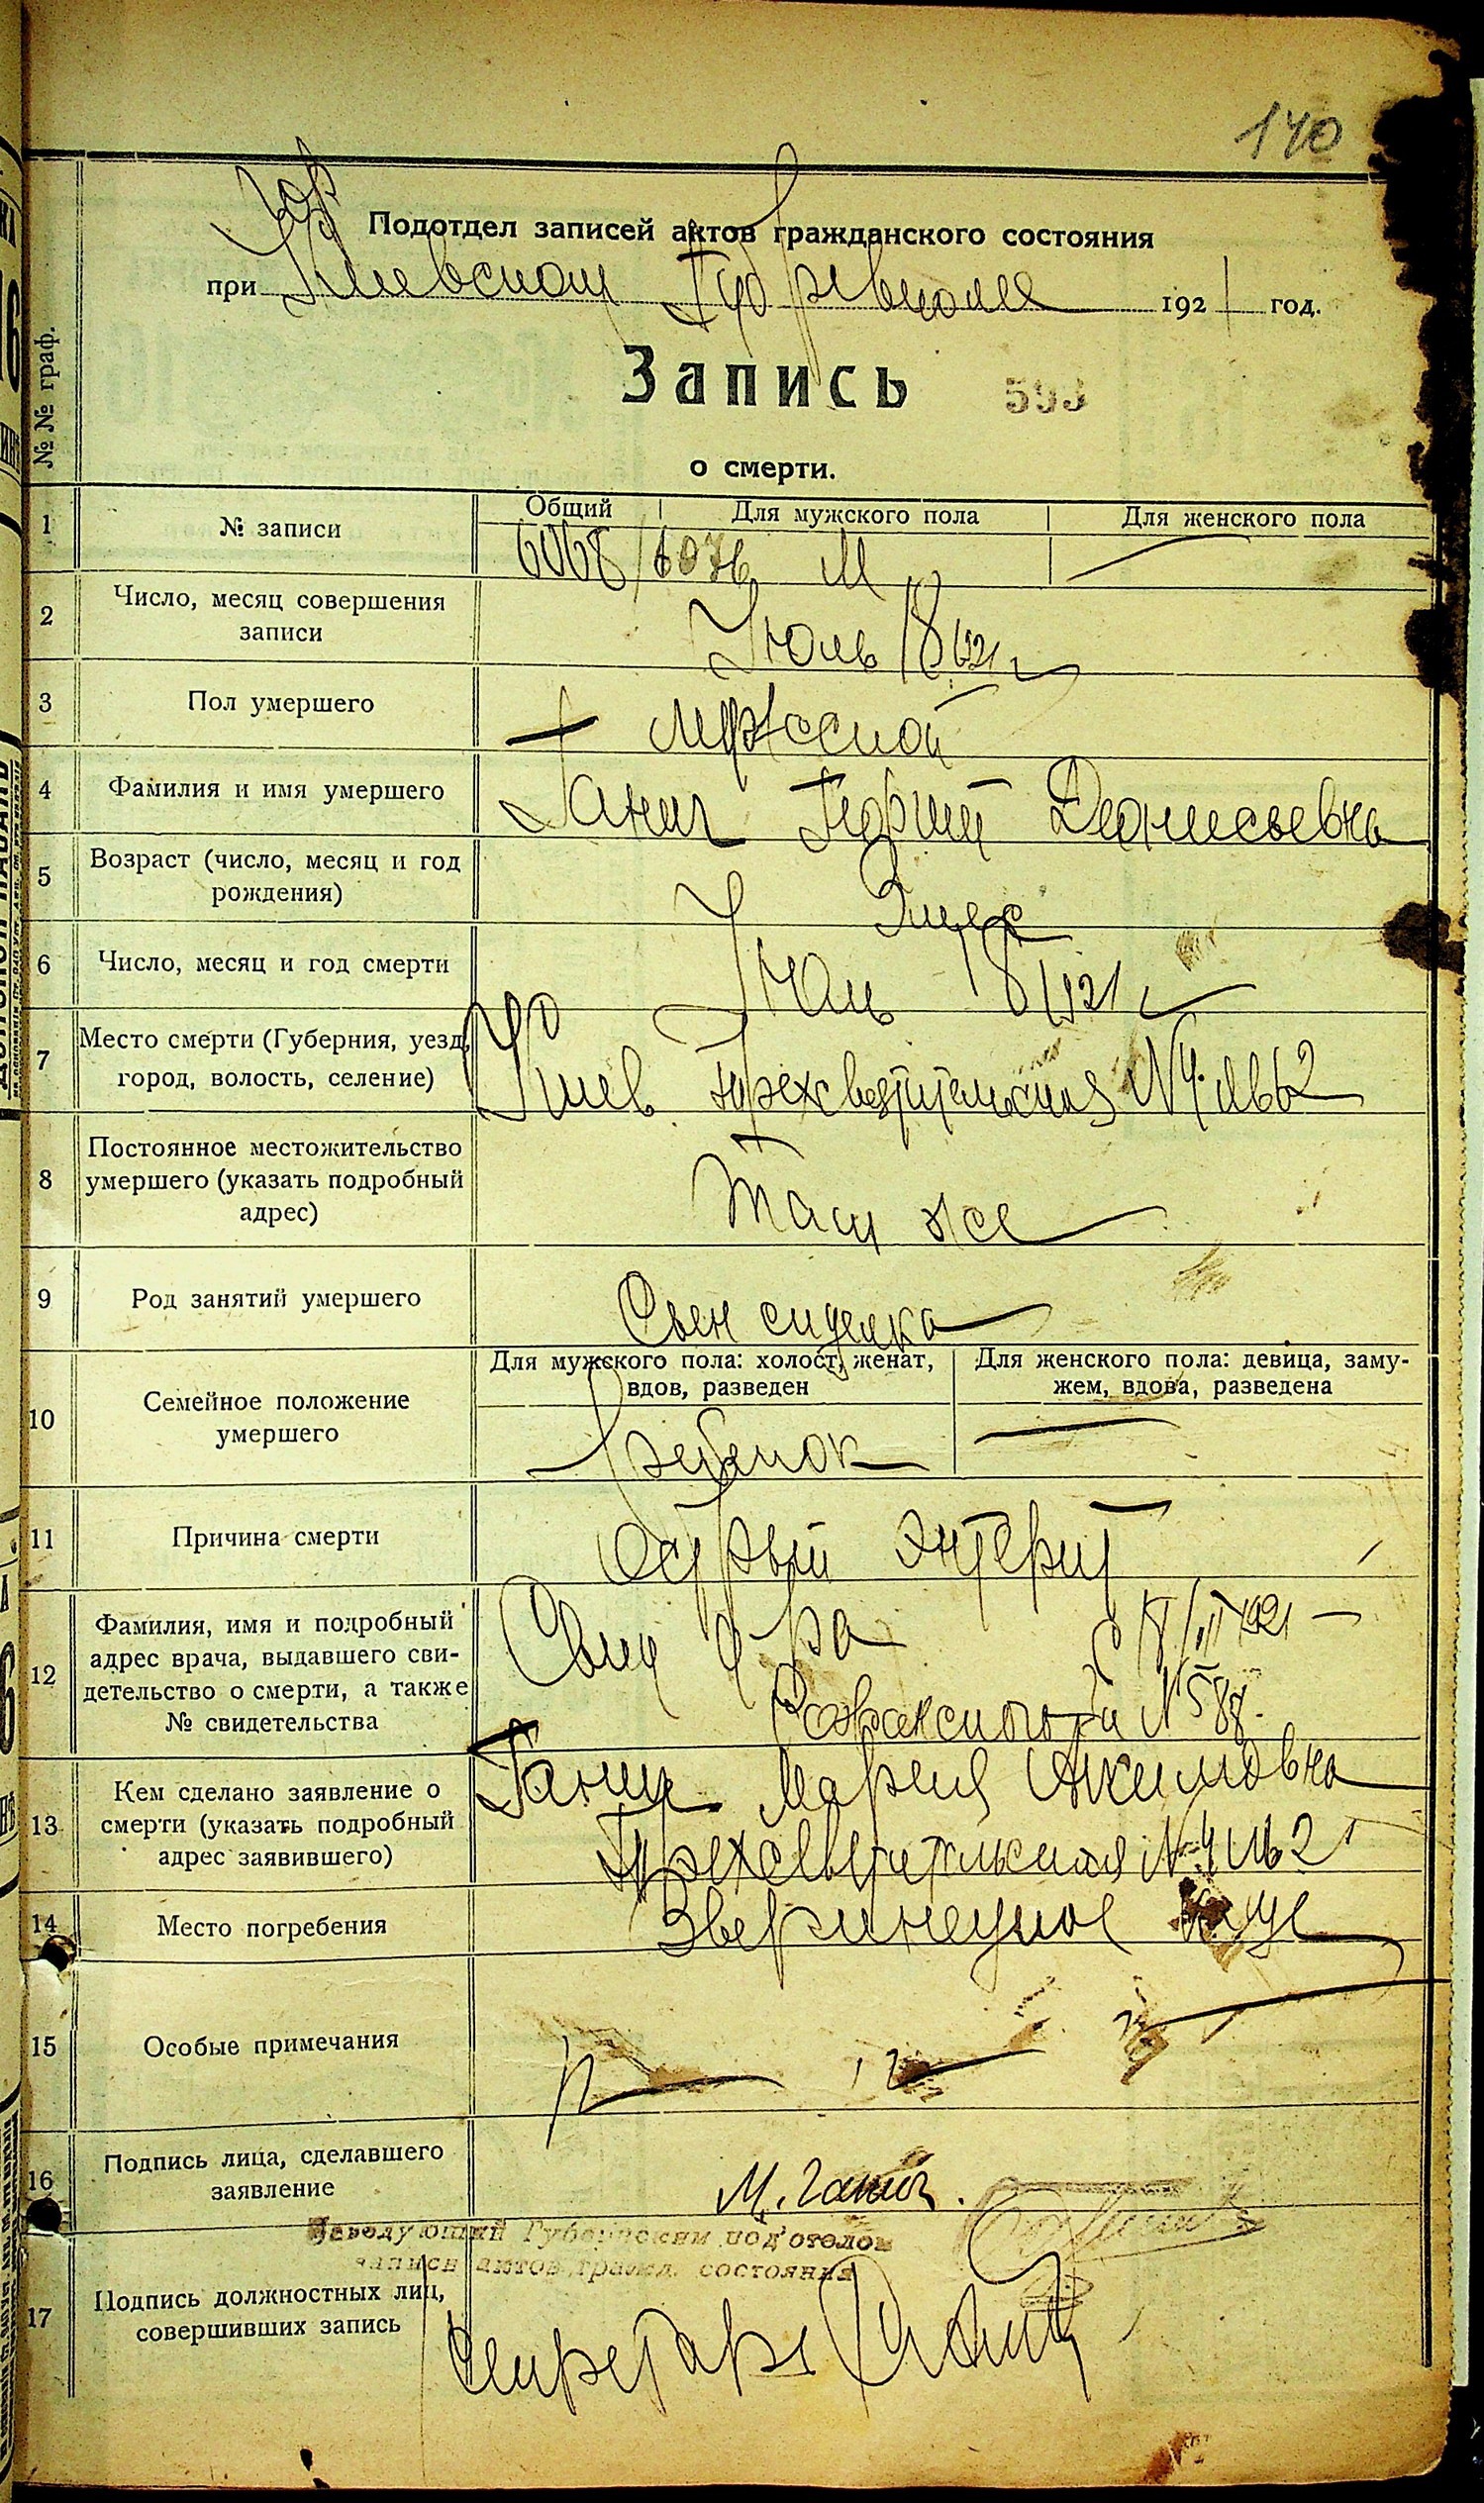 140
Подотдел записей актов гражданского состояния
при Киевском Губревкоме 1921 год.
№ № граф.
Запись
593
о смерти.
1 № записи Общий Для мужского пола Для женского пола
6068/6076 М
2 Число, месяц совершения записи
Июль 18 1921
3 Пол умершего
мужской
4 Фамилия и имя умершего
Ганич Георгий Дионисьевна
5 Возраст (число, месяц и год рождения)
3 мес
6 Число, месяц и год смерти
Июль 18 1921
7 Место смерти (Губерния, уезд, город, волость, селение)
Киев Трехсвятительская № 4 кв 2
8 Постоянное местожительство умершего (указать подробный адрес)
Там же
9 Род занятий умершего
Сын сиделка
10 Семейное положение умершего
Для мужского пола: холост, женат, вдов, разведен
Для женского пола: девица, замужем, вдова, разведена
ребенок
11 Причина смерти
Острый энтерит
12 Фамилия, имя и подробный адрес врача, выдавшего свидетельство о смерти, а также № свидетельства
Свид д-ра
13 Кем сделано заявление о смерти (указать подробный адрес заявившего)
Ганич Мария Акимовна
Трехсвятительская № 4 кв 2
14 Место погребения
Зверинецкое
15 Особые примечания
16 Подпись лица, сделавшего заявление
М. Ганич.
Заведующий Губернским под'отделом
записи актов гражд. состояния
17 Подпись должностных лиц, совершивших запись
Секретарь